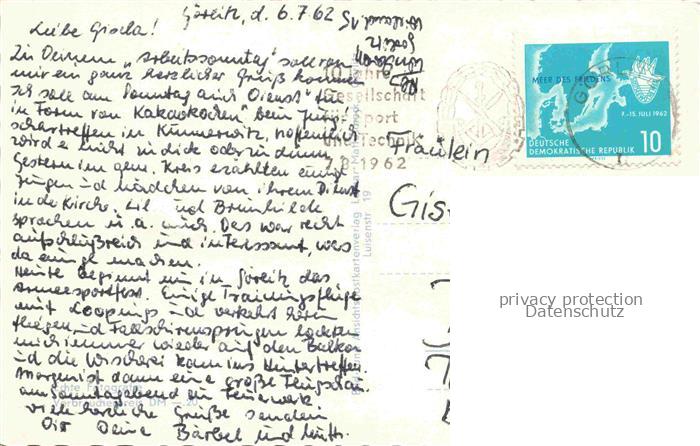 Görlitz, d. 6.7.62
Liebe Gisela!
Zu Deinem "Arbeitssonntag" soll von
mir ein ganz herzlicher Gruß kommen.
Ich soll am Sonntag auch "Dienst" tun
in Form von "Kakaokochen" beim
schartreffen in Kunnerwitz, hoffentlich
wird er nicht zu dick oder zu dünn.
Gestern im gem. Kreis erzählten einige
Jungen und Mädchen von ihrem Dienst
in der Kirche. und Brünhilde
sprachen u. a. auch. Das war recht
aufschlußreich und interessant, was
da einige machen.
Heute beginnt nun in Görlitz das
Armeesportfest. Einige Trainingsflüge
mit Loopings und verkehrt herum
fliegen, und Fallschirmspringen lockten
mich immer wieder auf den Balkon
und die Wischerei kam ins Hintertreffen.
Morgen ist dann eine große Flugschau
am Sonntagabend ein Feuerwerk
viele herzliche Grüße senden
Dir Deine Bärbel und Mutti.
10 Jahre
Gesellschaft
für Sport
und Technik
7.8.1962
MEER DES FRIEDENS
7.-15. JULI 1962
DEUTSCHE
DEMOKRATISCHE REPUBLIK
10
Fräulein
Gis
Luisenstr. 19
Echte Fotografie
Verbraucherpreis DM -.20
privacy protection
Datenschutz